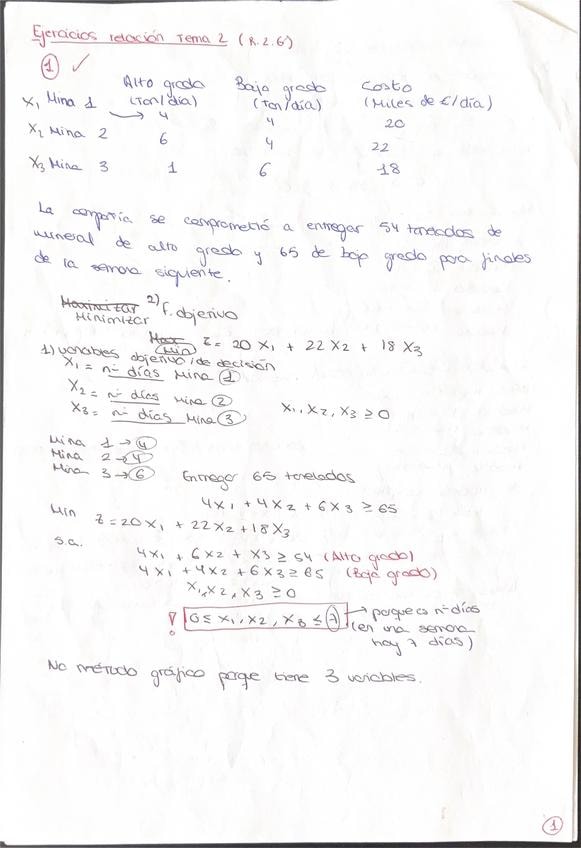 Ejercicios relación Tema 2 (R.2.6)
① ✓
Alto grado Bajo grado Costo
(Ton/día) (Ton/día) (Miles de €/día)
X₁ Mina 1 → 4 4 20
X₂ Mina 2 6 4 22
X₃ Mina 3 1 6 18
La compañía se comprometió a entregar 54 toneladas de
mineral de alto grado y 65 de bajo grado para finales
de la semana siguiente.
Maximizar 2) f. objetivo
Minimizar
Max
Min Z = 20 X₁ + 22 X₂ + 18 X₃
1) variables objetivo / de decisión
X₁ = nº días Mina ①
X₂ = nº días Mina ②
X₃ = nº días Mina ③ X₁, X₂, X₃ ≥ 0
Mina 1 → ④
Mina 2 → ④
Mina 3 → ⑥ Entregar 65 toneladas
4X₁ + 4X₂ + 6X₃ ≥ 65
Min Z = 20X₁ + 22X₂ + 18X₃
s.a.
4X₁ + 6X₂ + X₃ ≥ 54 (Alto grado)
4X₁ + 4X₂ + 6X₃ ≥ 65 (Bajo grado)
X₁, X₂, X₃ ≥ 0
! 0 ≤ X₁, X₂, X₃ ≤ ⑦ → porque es nº días
(en una semana
hay 7 días)
No método gráfico porque tiene 3 variables.
①